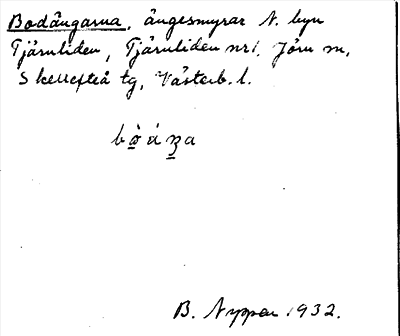 Bodängarna, ängesmyrar N. byn
Tjärnliden, Tjärnliden nr 1, Jörn sn,
Skellefteå tg, Västerb. l.
B. Nyman 1932.